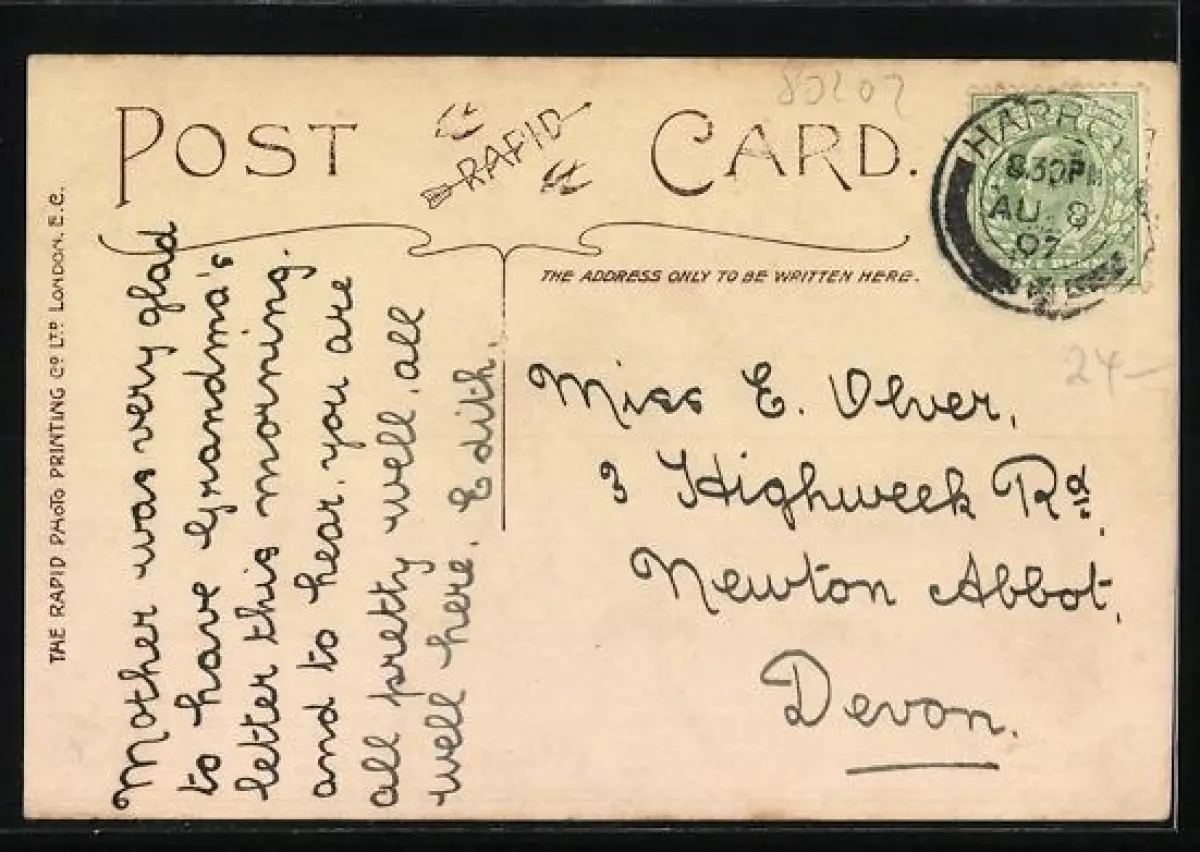 80207
POST CARD.
RAPID
HARRO
8.30PM
AU 8
07
THE ADDRESS ONLY TO BE WRITTEN HERE.
24-
THE RAPID PHOTO PRINTING Co LTD LONDON. E.C.
Mother was very glad
to have Grandma's
letter this morning.
and to hear, you are
all pretty well, all
well here, Edith.
Miss E. Olver,
3 Highweek Rd.
Newton Abbot,
Devon.